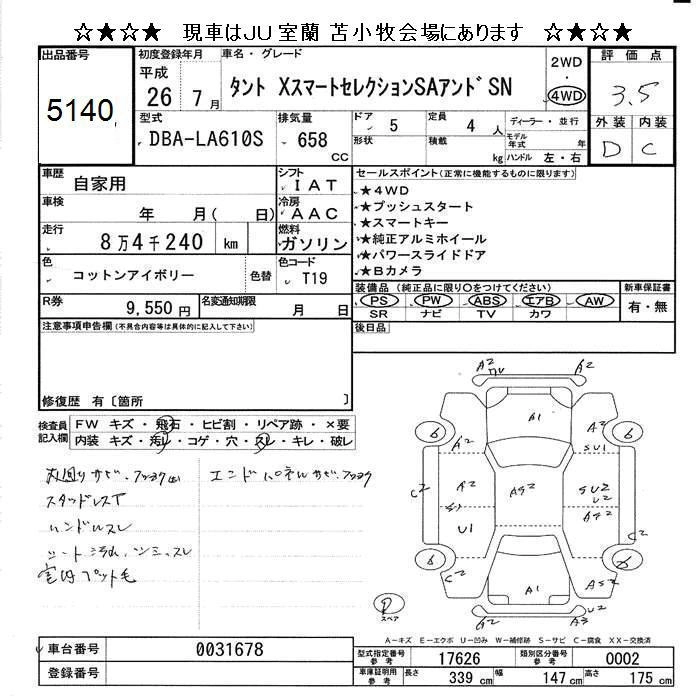 ☆★☆★　現車はJU室蘭 苫小牧会場にあります　☆★☆★
出品番号
5140
初度登録年月
平成
26 7月
車名・グレード
タント XスマートセレクションSAアンド゛SN
2WD
・
4WD
評価点
3.5
外装 内装
D C
型式
DBA-LA610S
排気量
658
CC
ドア
5
形状
定員
4人
積載
kg
ディーラー・並行
モデル年式 年
ハンドル 左・右
車歴
自家用
シフト
IAT
車検
年 月( 日)
冷房
AAC
走行
8万4千240 km
燃料
ガソリン
色
コットンアイボリー
色替
色コード
T19
R券
9,550円
名変通知期限
月 日
セールスポイント(正常に機能するものに限ります)
★4WD
★プッシュスタート
★スマートキー
★純正アルミホイール
★パワースライドドア
★Bカメラ
装備品(純正品に限り〇をつけてください)
PS PW ABS エアB AW
SR ナビ TV カワ
新車保証書
有・無
後日品
注意事項申告欄(不具合内容等は具体的に記入して下さい)
修復歴 有〔箇所 〕
検査員
記入欄
FW キズ・飛石・ヒビ割・リペア跡・×要
内装 キズ・汚レ・コゲ・穴・スレ・キレ・破レ
スタッドレスT
ハンドルスレ
室内ペット毛
A2
A2
A1
6
6
A2
A2
SU1
C2
A2
A92
SU2
U2
A92
U1
C2
6
6
C2
A1
AS2
U2
A2
A3
スペア
A-キズ E-エクボ U-凹み W-補修跡 S-サビ C-腐食 XX-交換済
車台番号
0031678
登録番号
型式指定番号
参考
17626
類別区分番号
参考
0002
車庫証明用
参考
長さ
339 cm
幅
147 cm
高さ
175 cm